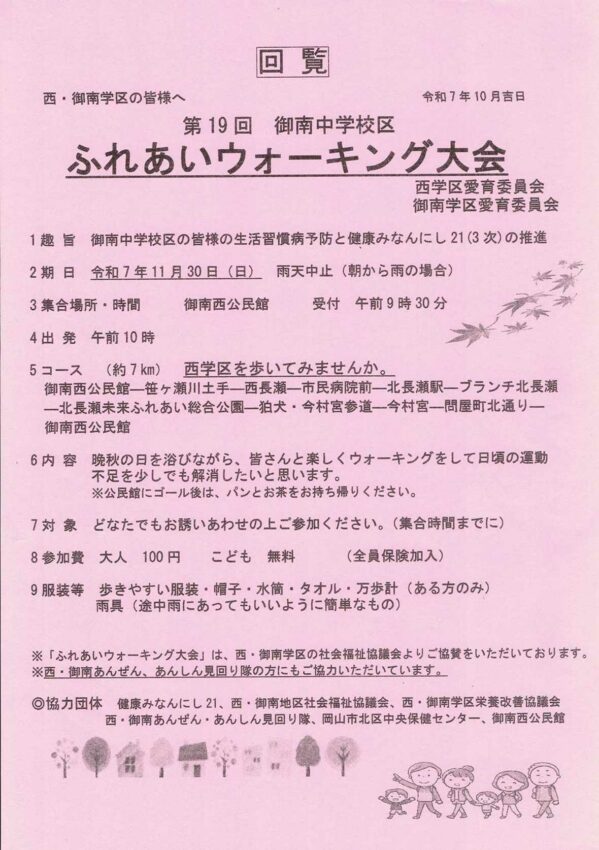 回 覧
西・御南学区の皆様へ
令和7年10月吉日
第19回 御南中学校区
ふれあいウォーキング大会
西学区愛育委員会
御南学区愛育委員会
1 趣 旨 御南中学校区の皆様の生活習慣病予防と健康みなんにし21(3次)の推進
2 期 日 令和7年11月30日(日) 雨天中止(朝から雨の場合)
3 集合場所・時間 御南西公民館 受付 午前9時30分
4 出 発 午前10時
5 コース (約7km) 西学区を歩いてみませんか。
御南西公民館―笹ヶ瀬川土手―西長瀬―市民病院前―北長瀬駅―ブランチ北長瀬
―北長瀬未来ふれあい総合公園―狛犬・今村宮参道―今村宮―問屋町北通り―
御南西公民館
6 内 容 晩秋の日を浴びながら、皆さんと楽しくウォーキングをして日頃の運動
不足を少しでも解消したいと思います。
※公民館にゴール後は、パンとお茶をお持ち帰りください。
7 対 象 どなたでもお誘いあわせの上ご参加ください。(集合時間までに)
8 参加費 大人 100円 こども 無料 (全員保険加入)
9 服装等 歩きやすい服装・帽子・水筒・タオル・万歩計(ある方のみ)
雨具(途中雨にあってもいいように簡単なもの)
※「ふれあいウォーキング大会」は、西・御南学区の社会福祉協議会よりご協賛をいただいております。
※西・御南あんぜん、あんしん見回り隊の方にもご協力いただいています。
◎協力団体 健康みなんにし21、西・御南地区社会福祉協議会、西・御南学区栄養改善協議会
西・御南あんぜん・あんしん見回り隊、岡山市北区中央保健センター、御南西公民館